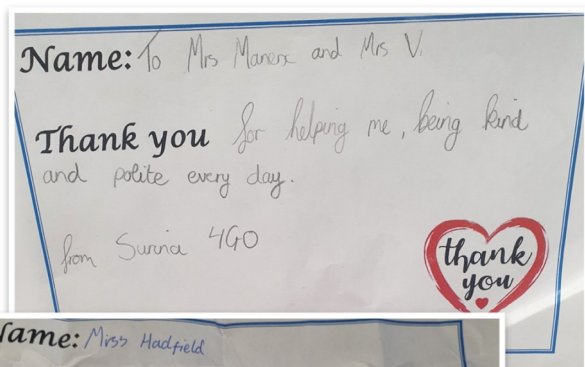 Name: To Mrs Manerx and Mrs V.
Thank you for helping me, being kind
and polite every day.
from 4GO
thank
you
Name: Miss Hadfield